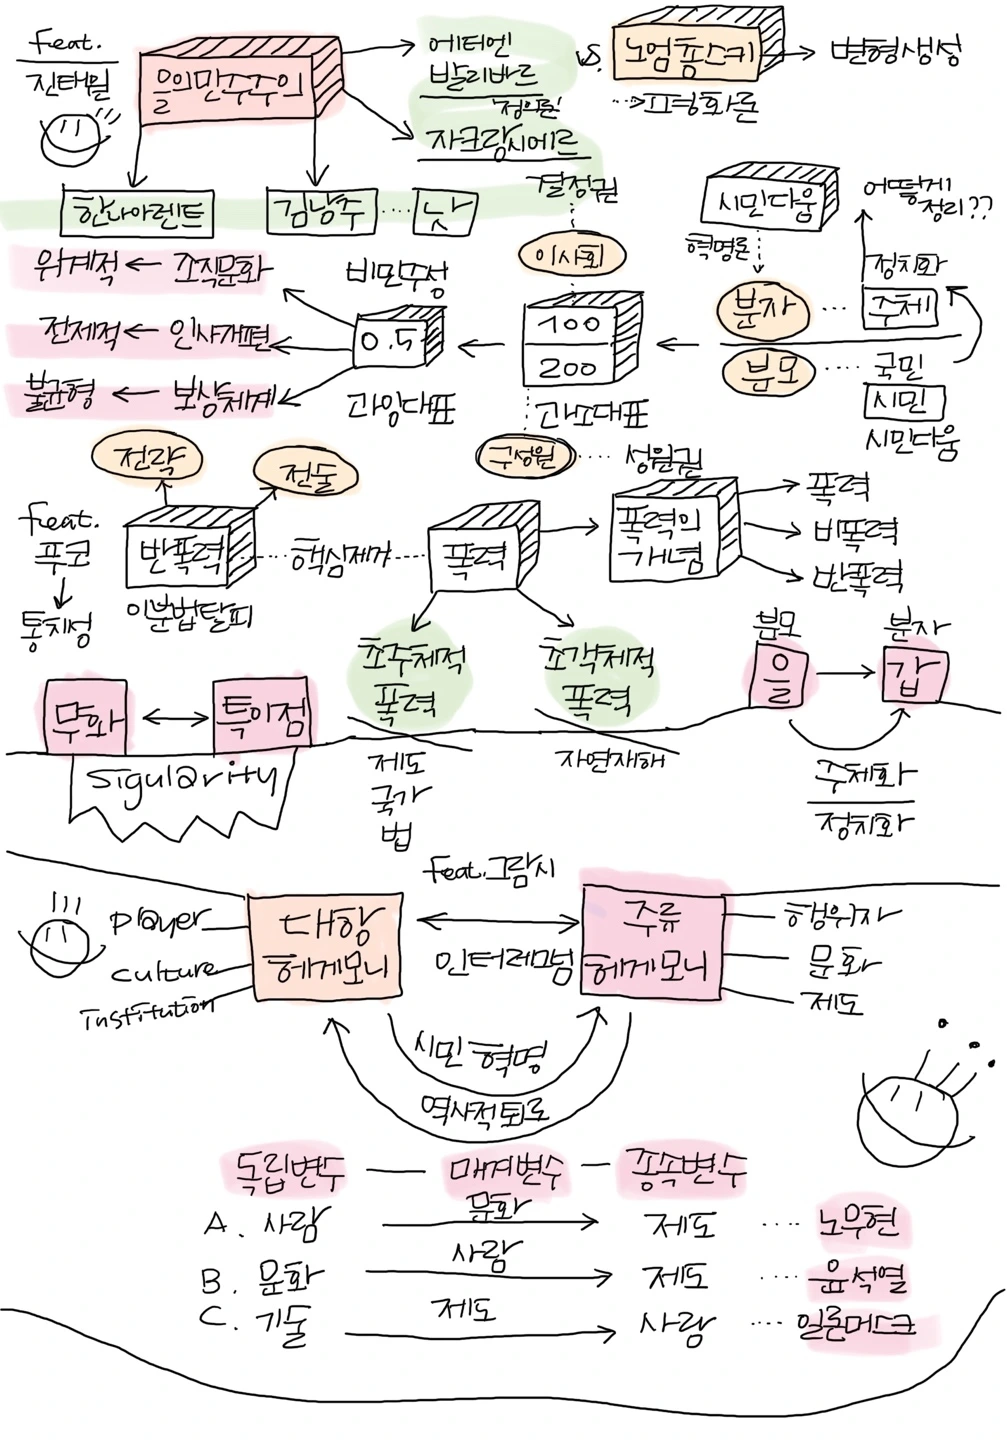 feat.
진태원
을의민주주의
에티엔
발리바르
'정의론'
자크랑시에르
vs.
노엄촘스키
변형생성
→ 표명화론
한나아렌트
김남주
낫
결정권
시민다움
어떻게
정리??
혁명론
위계적 ← 조직문화
비민주성
이사회
정치화
분자
주체
전제적 ← 인사개편
0.5
100
200
분모
국민
불균형 ← 보상체계
과잉대표
과소대표
시민
시민다움
전략
전술
구성원
성원권
feat.
푸코
통치성
반폭력
핵심제거
폭력
폭력의
개념
폭력
비폭력
반폭력
이분법탈피
초주체적
폭력
초객체적
폭력
분모
분자
을
갑
무화
특이점
sigularity
제도
국가
법
자연재해
주체화
정치화
feat.그람시
player
culture
institution
대항
헤게모니
인터레그넘
주류
헤게모니
행위자
문화
제도
시민 혁명
역사적퇴로
독립변수 — 매개변수 — 종속변수
A. 사람 문화 제도 .... 노무현
B. 문화 사람 제도 .... 윤석열
C. 기술 제도 사람 .... 일론머스크